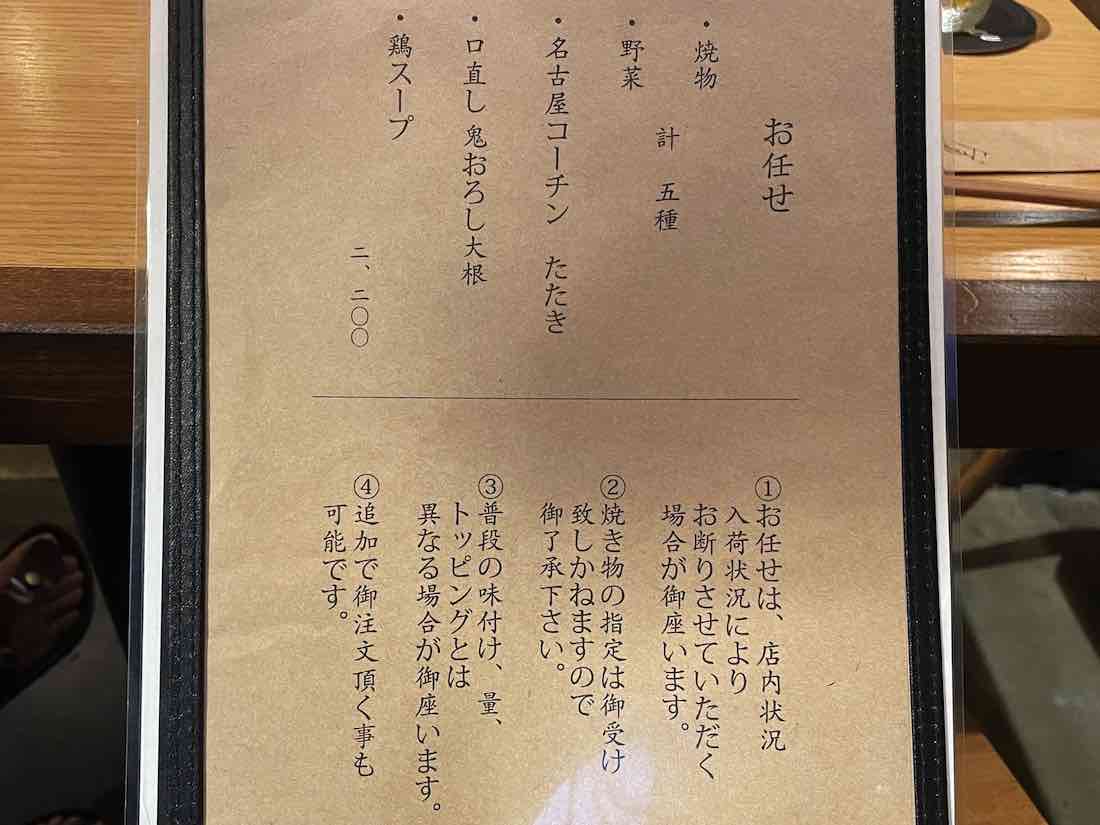 お任せ
・焼物
計 五種
・野菜
・名古屋コーチン たたき
・口直し 鬼おろし大根
・鶏スープ
二、二〇〇
①お任せは、店内状況
入荷状況により
お断りさせていただく
場合が御座います。
②焼き物の指定は御受け
致しかねますので
御了承下さい。
③普段の味付け、量、
トッピングとは
異なる場合が御座います。
④追加で御注文頂く事も
可能です。